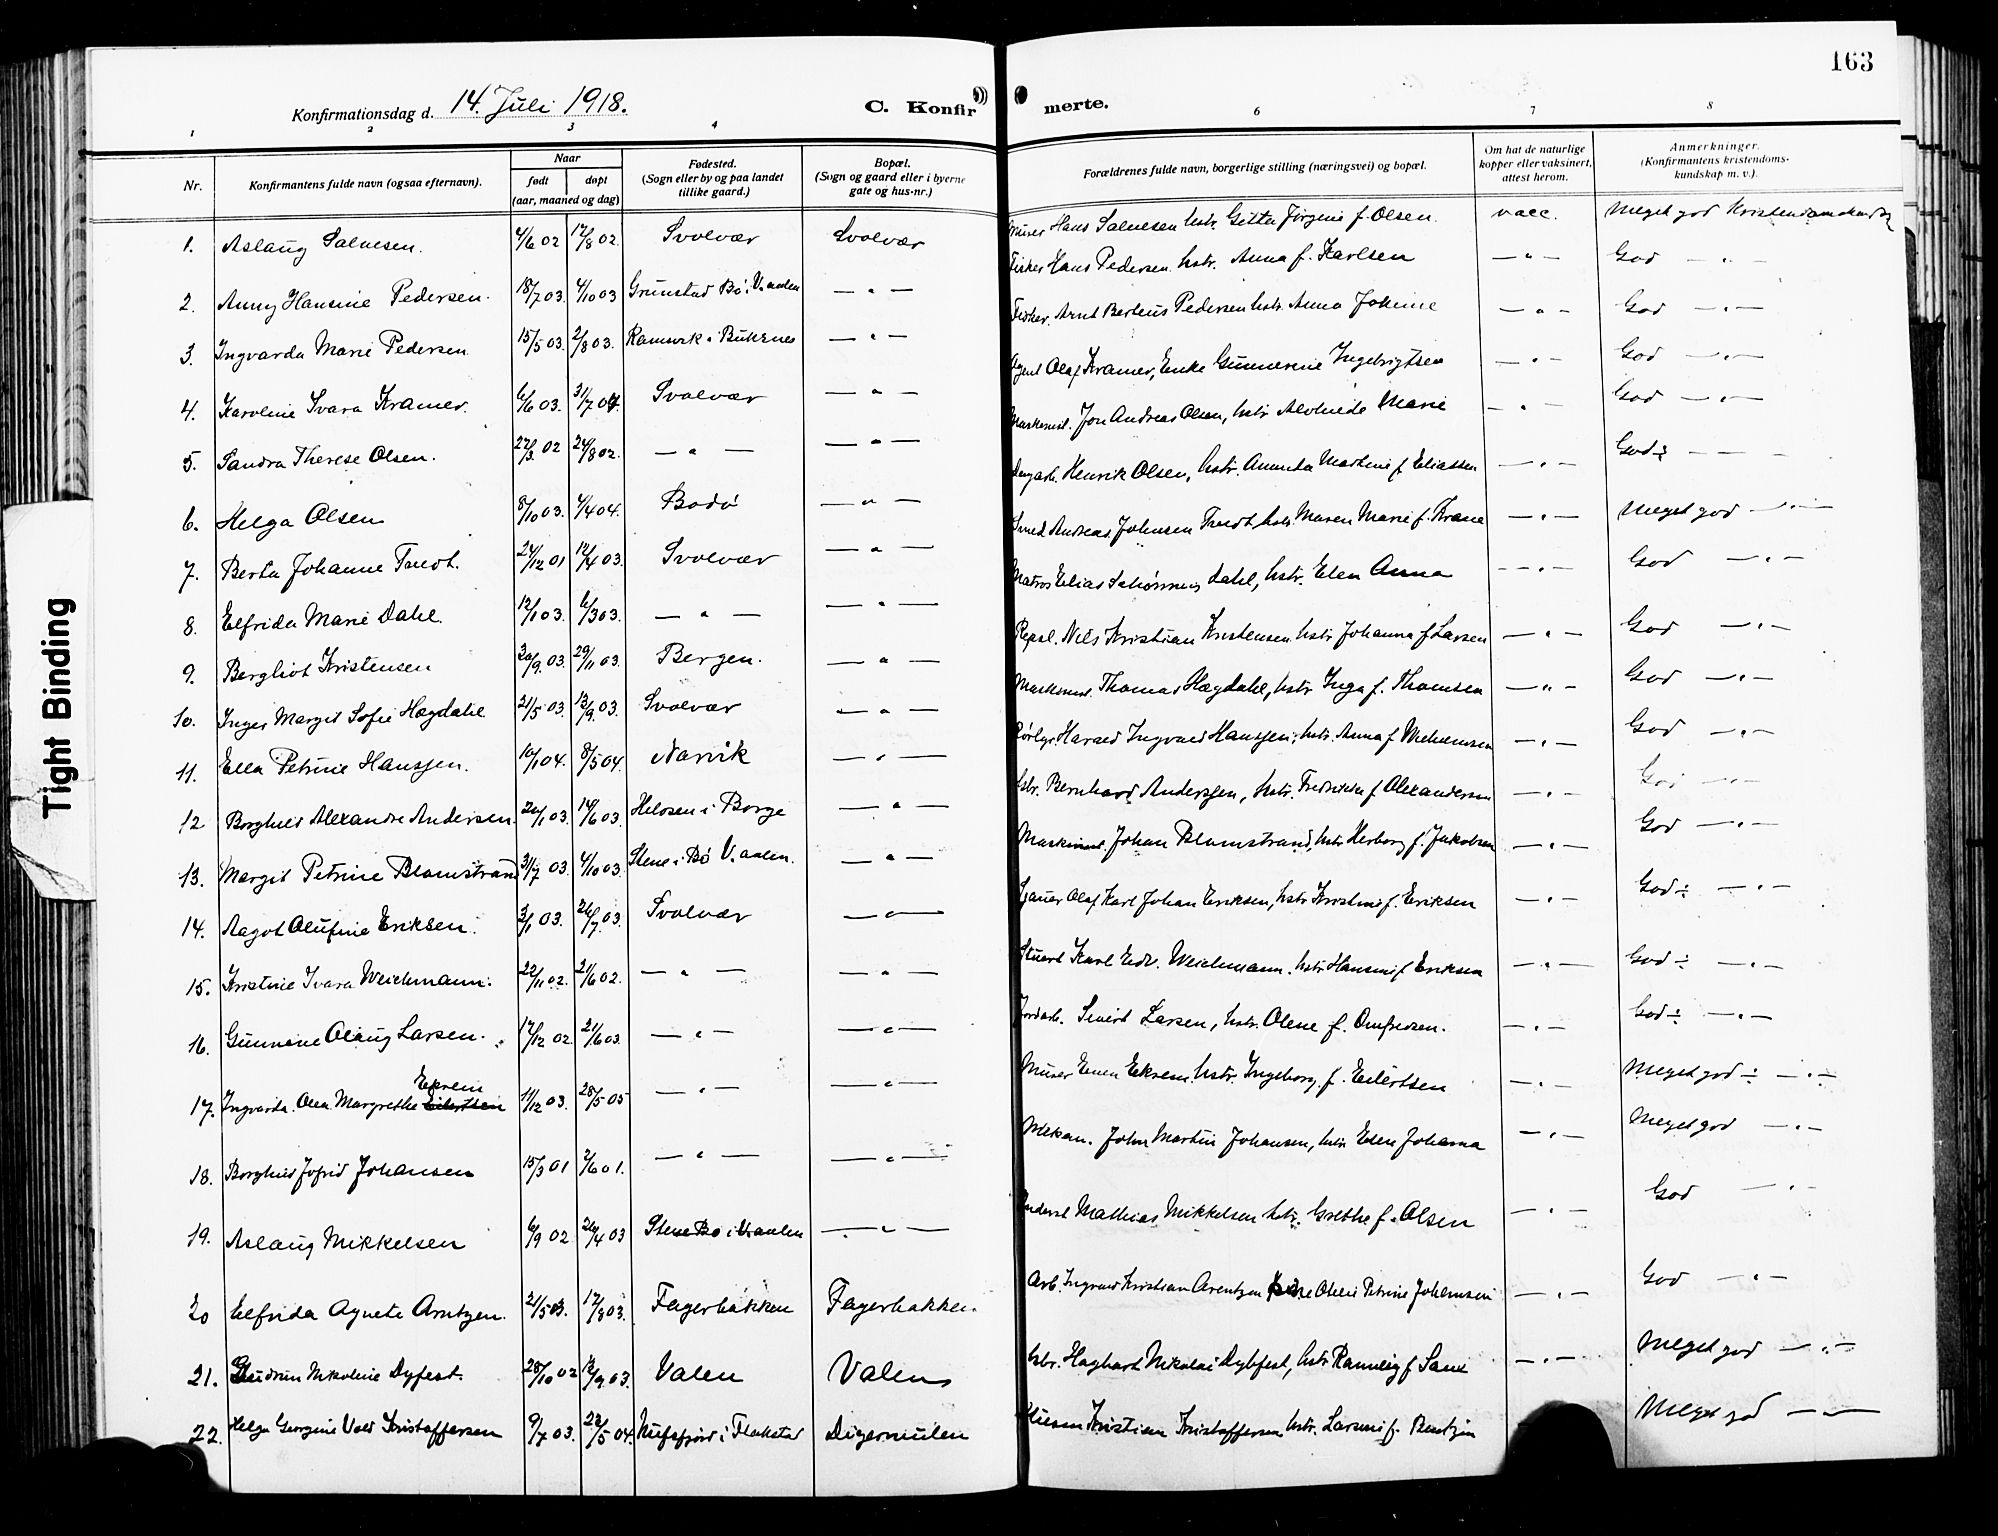 163
Konfirmationsdag d. 14. Juli 1918.
C. Konfir merte.
1 2 3 4 6 7 8
Nr.
Konfirmantens fulde navn (ogsaa efternavn).
Naar
født
døpt
(aar, maaned og dag)
Fødested.
(Sogn eller by og paa landet
tillike gaard.)
Bopæl.
(Sogn og gaard eller i byerne
gate og hus-nr.)
Forældrenes fulde navn, borgerlige stilling (næringsvei) og bopæl.
Om hat de naturlige
kopper eller vaksinert,
attest herom.
Anmerkninger.
(Konfirmantens kristendoms-
kundskap m. v.).
1. Aslaug Salvesen. 4/6 02 17/8 02. Svolvær Svolvær Murer Hans Salvesen hstr. Gitta Jørgine f. Olsen. vacc. Meget god
2. Anny Hansine Pedersen. 18/7 03. 4/10 03 Grunstad Bø i V.aalen — " — Fisker Hans Pedersen hstr. Anna f. Karlsen — " — God — " —
3. Ingvarda Marie Pedersen 15/5 03. 2/8 03. Ramsvik i Buksnes — " — Fisker. Arnt Berteus Pedersen hstr. Anna — " — God — " —
4. Karoline Svara Kramer. 6/6 03. 31/7 04. Svolvær — " — Agent Olaf Kramer, Enke Ingebrigtsen — " — God — " —
5. Sandra Therese Olsen. 27/3 02 24/8 02. — " — — " — Maskinist. Jon Andreas Olsen, hstr. Marie — " — God — " —
6. Helga Olsen 8/10 03. 4/4 04. Bodø — " — Henrik Olsen, hstr. Martine f. Eliassen — " — God ÷ — — —
7. Berta Johanne 24/12 01 12/4 03. Svolvær — " — Smed Andreas Johnsen hstr. Maren Marie f. Krane — " — Meget god — " —
8. Elfrida Marie Dahl. 12/1 03. 6/3 03. — " — — " — Matros Elias Dahl, hstr. Elen Anna — " — God — " —
9. Bergliot Kristensen 30/9 03. 29/11 03. Bergen. — " — Nils Kristian Kristensen hstr Johanna f Larsen — " — God — " —
10. Inger Margit Sofie Hægdahl 21/5 03. 13/9 03. Svolvær — " — Maskinist. Thomas Hægdahl, hstr Inga f. Thomsen — " — God — " —
11. Ella Petrine Hanssen. 10/1 04. 8/5 04. Narvik — " — Harald Ingvald Hanssen, hstr. Anna f Wilhelmsen — " — God — " —
12 Borghild Alexandra Andersen 20/1 03. 14/6 03. Helosen i Borge — " — hbr. Bernhard Anderssen, hstr. Fredrikke f Alexandersen — " — God — " —
13. Margit Petrine Blomstrand 31/7 03. 4/10 03. Stene i Bø V.aalen. — " — Maskinist. Johan Blomstrand, hstr Herborg f. Jakobsen — " — God — " —
14. Aagot Olufine Eriksen. 3/1 03. 26/7 03. Svolvær — " — Olaf Karl Johan Eriksen, hstr Kristine f. Eriksen — " — God ÷ — " —
15. Kristine Ivara Weichmann. 22/11 02. 21/6 02. — " — — " — Stuert Karl Edv. Weichmann. hstr Hansine f Eriksen — " — God ÷ — " —
16. Gunnene Olaug Larsen. 17/12 02 21/6 03. — " — — " — Jordarb. Sivert Larsen, hstr. Olene f. — " — God ÷ — " —
17. Ingvarda Olea Margrethe Eilertsen Ekrem 11/12 03. 28/5 05 — " — — " — Murer Ekrem hstr. Ingeborg f. Eilertsen — " — Meget god ÷ — " —
18. Borghild Jofrid Johansen 15/3 01 2/6 01. — " — — " — Mekan. John Martin Johansen, hstr Elen Johanna — " — Meget god — " —
19. Aslaug Mikkelsen 6/9 02 26/4 03 Stene Bø i V.aalen — " — Mathias Mikkelsen hstr. Grethe f. Olsen — " — God — " —
20 Elfrida Agnete Arntzen. 21/5 03. 17/8 03. Fagerbakken Fagerbakken Arb. Ingvald Kristian Arentzen Petrine Johansen — " — God — " —
21. Gudrun Nikoline Dyfest. 28/10 02 13/9 03. Valen Valen hbr. Hagbart Nikolai Dybfest, hstr Rannveig f Sand — " — Meget god — " —
22. Helga Georgine Vold Kristoffersen 9/7 03. 23/5 04. Nufsfjord i Flakstad Digermulen Kristian Kristoffersen hstr. f. Bentzen Meget god — " —
Tight Binding